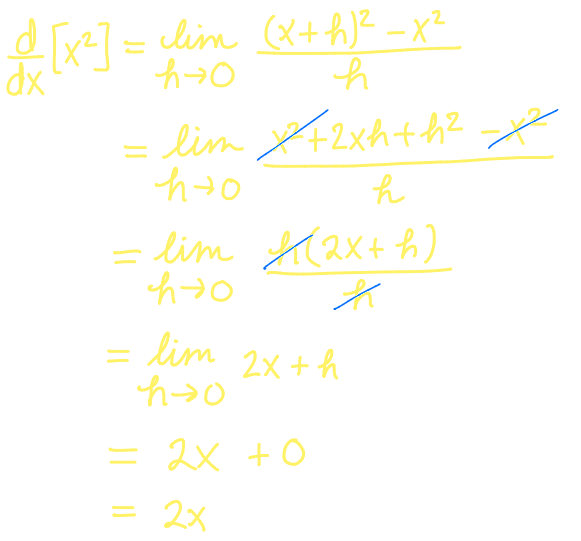 d/dx [x²] = lim h→0 ((x+h)² − x²)/h
= lim h→0 (x² + 2xh + h² − x²)/h
= lim h→0 h(2x + h)/h
= lim h→0 2x + h
= 2x + 0
= 2x